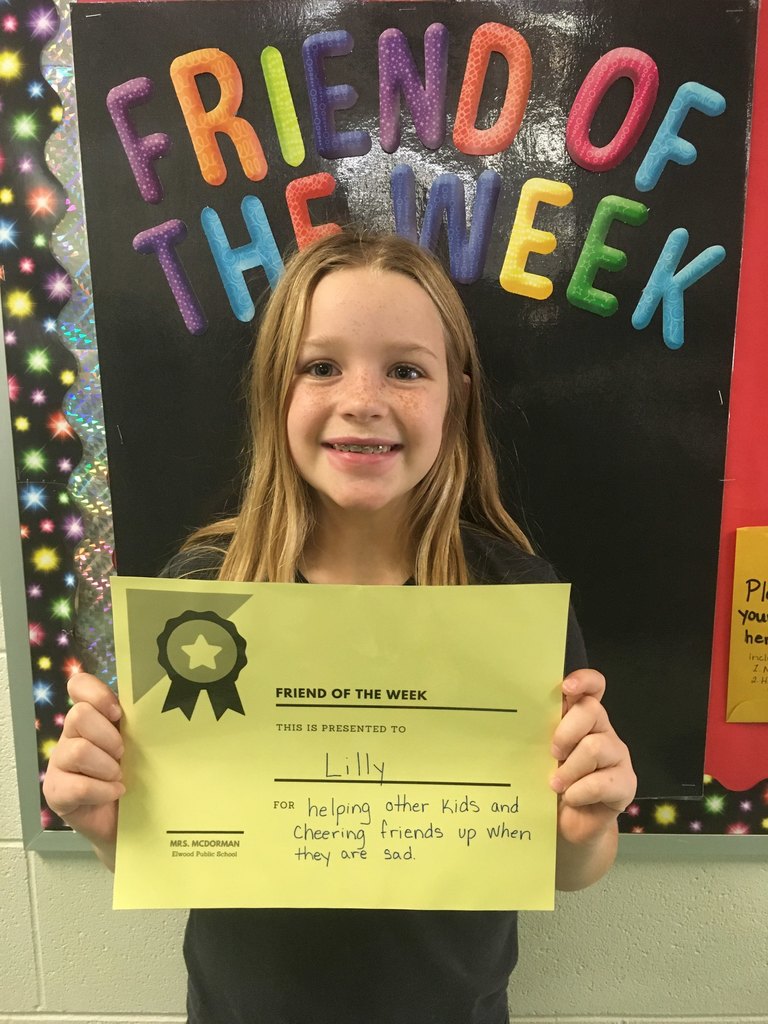 FRIEND OF
THE WEEK
FRIEND OF THE WEEK
THIS IS PRESENTED TO
Lilly
FOR helping other kids and
cheering friends up when
they are sad.
MRS. MCDORMAN
Elwood Public School
her
1.
2. H